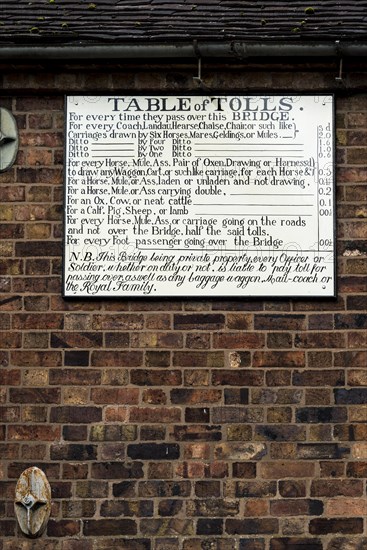 TABLE of TOLLS.
For every time they pass over this BRIDGE.
For every Coach, Landau, Hearse, Chaise, Chair, or such like
Carriages drawn by Six Horses, Mares, Geldings, or Mules 2.0
Ditto by Four Ditto 1.6
Ditto by Two Ditto 1.0
Ditto by One Ditto 0.6
For every Horse, Mule, Ass, Pair of Oxen, Drawing or Harness'd
to draw any Waggon, Cart, or such like carriage, for each Horse &c
For a Horse, Mule, or Ass, laden or unladen and not drawing,
For a Horse, Mule, or Ass carrying double,
For an Ox, Cow, or neat cattle
For a Calf, Pig, Sheep, or lamb
For every Horse, Mule, Ass, or carriage going on the roads
and not over the Bridge, half the said tolls.
For every Foot passenger going over the Bridge
N.B. This Bridge being private property, every Officer or
Soldier, whether on duty or not, is liable to pay toll for
passing over, as well as any baggage waggon, Mail-coach or
the Royal Family.